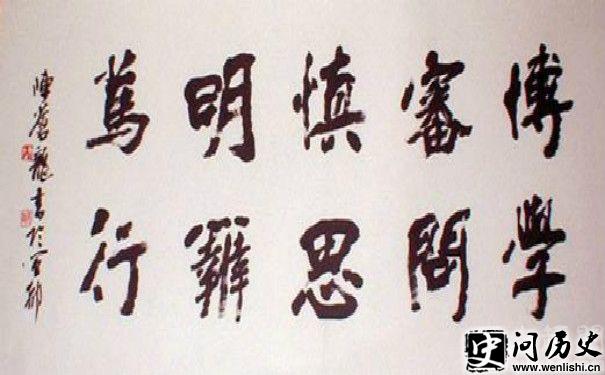 博學
審問
慎思
明辨
篤行
龍書於
史 问历史
www.wenlishi.cn